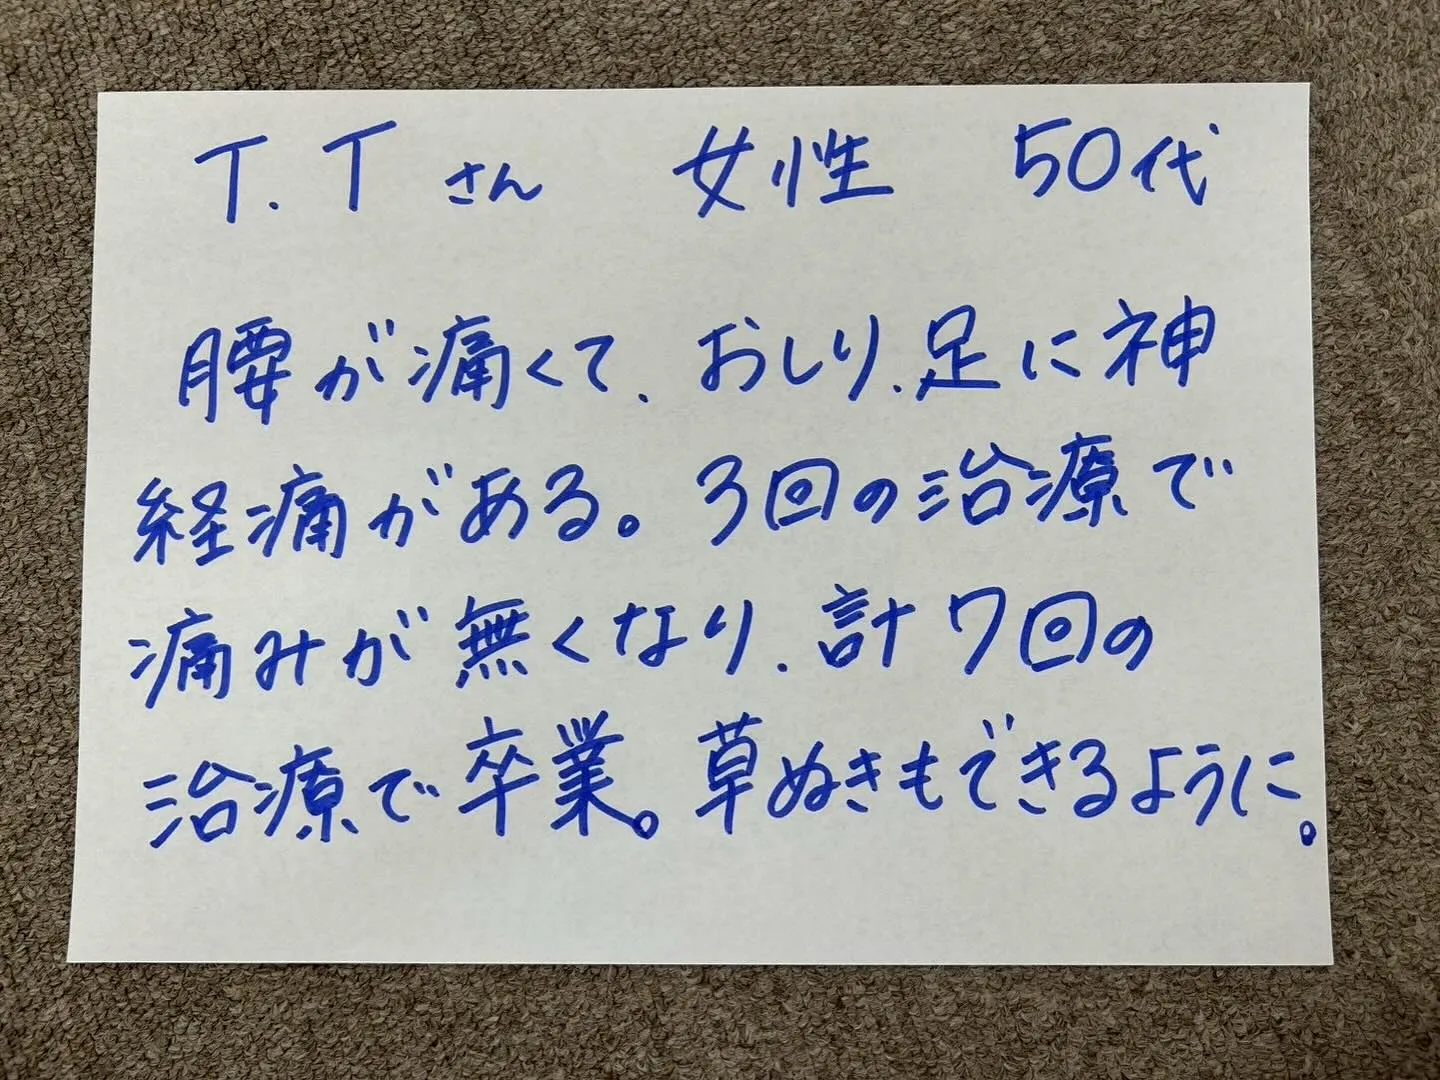 T.Tさん 女性 50代
腰が痛くて、おしり、足に神
経痛がある。3回の治療で
痛みが無くなり、計7回の
治療で卒業。草ぬきもできるように。